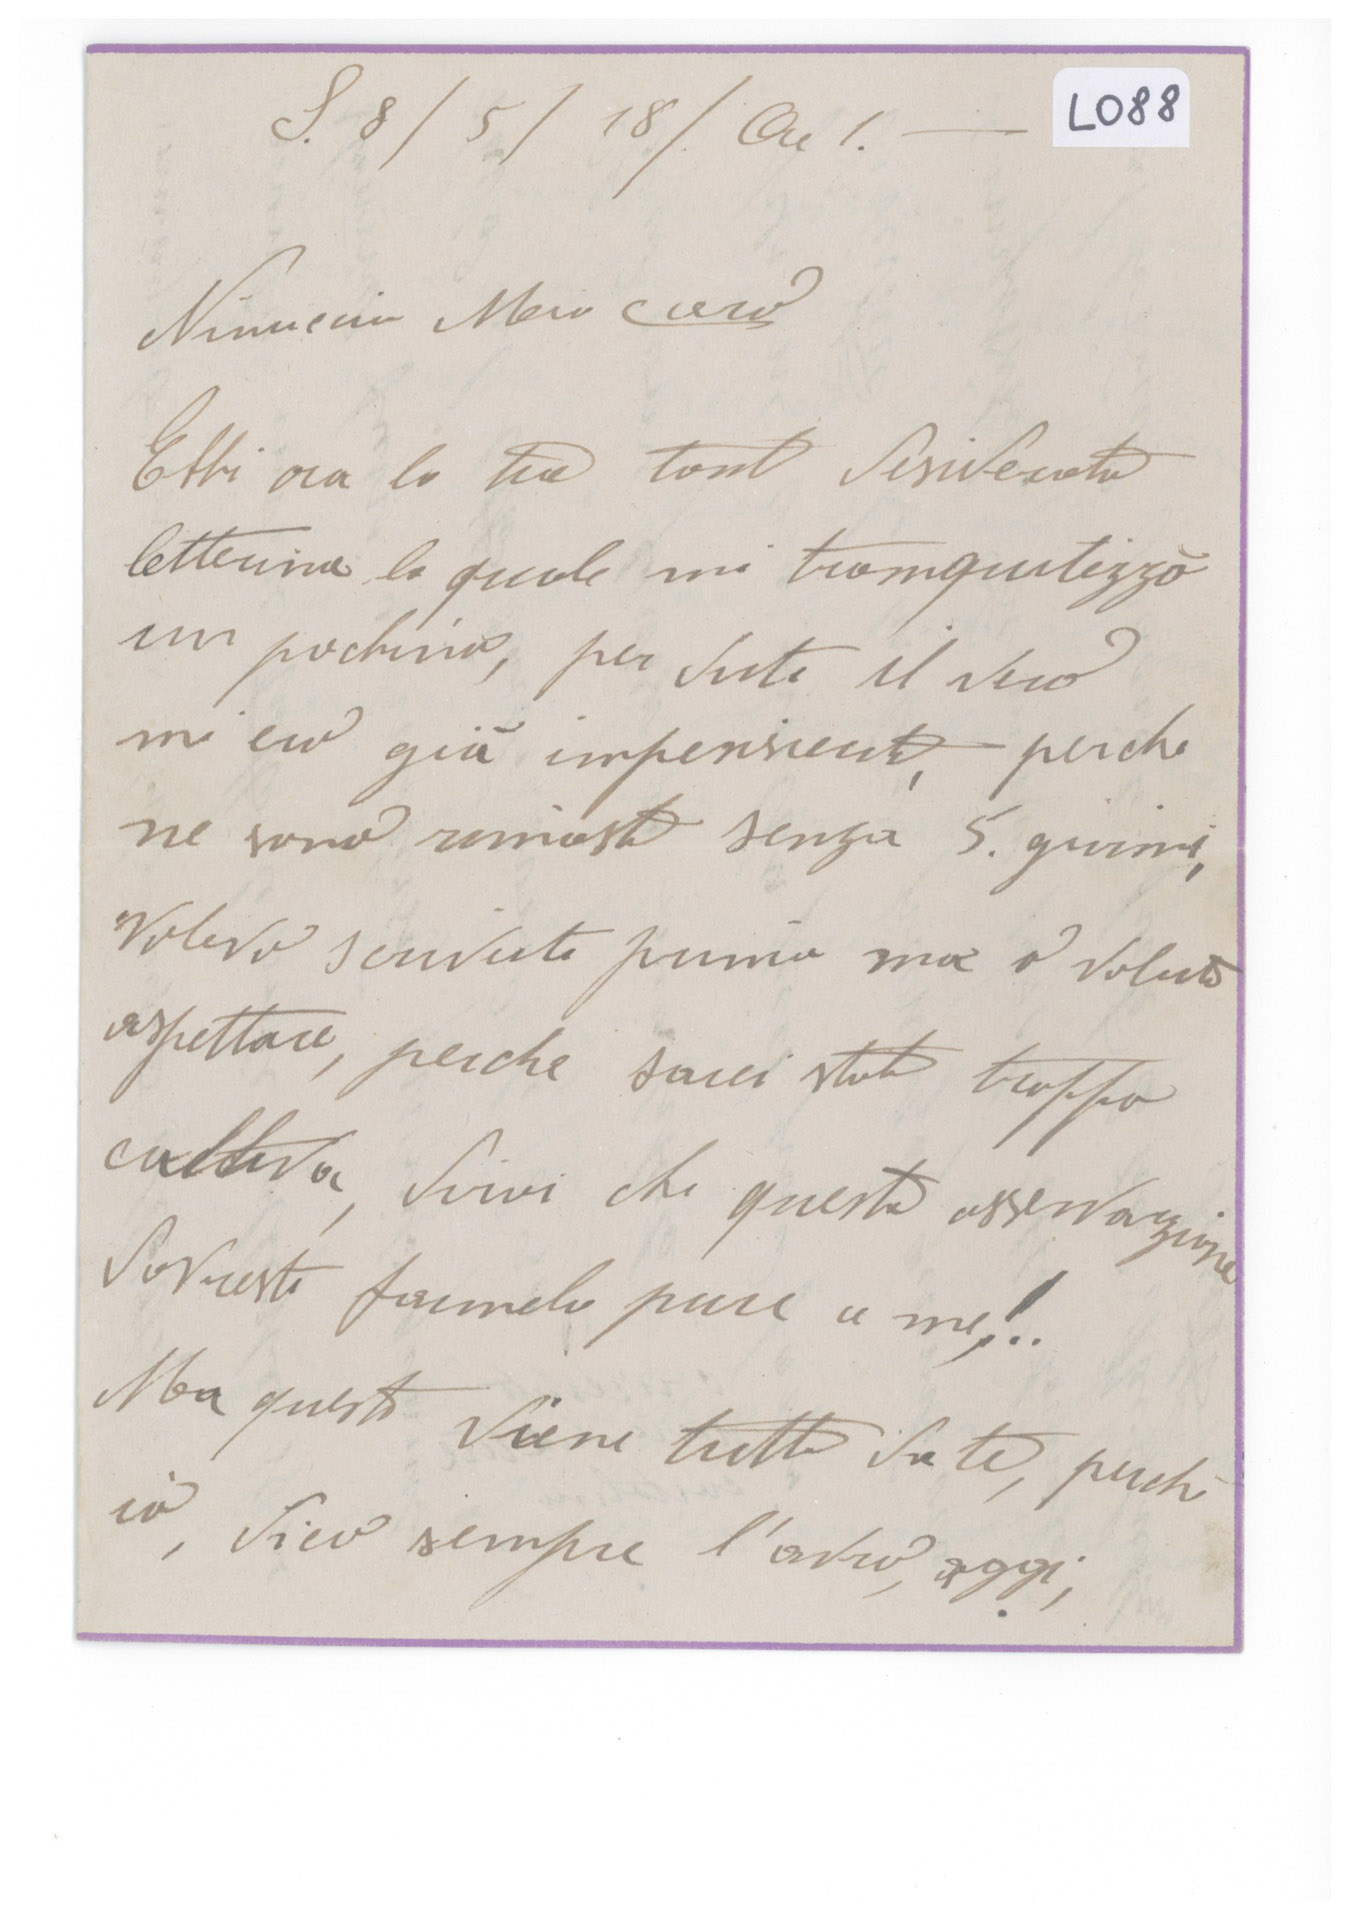 S. 8/5/18/. Ore 1. —
L088
Ninuccio Mio caro
Ebbi ora la tua tant desiderata
letterina la quale mi tranquilizzò
un pochino, per dirti il vero
mi ero già impensierita, perche
ne sono rimasta senza 5. giorni,
volevo scriverti prima ma ò voluto
aspettare, perche sarei stata troppo
cattiva, dirai che questa osservazione
dovresti farmela pure a me,!..
Ma questo viene tutto da te, perchè
io, dico sempre l'avrò, oggi,